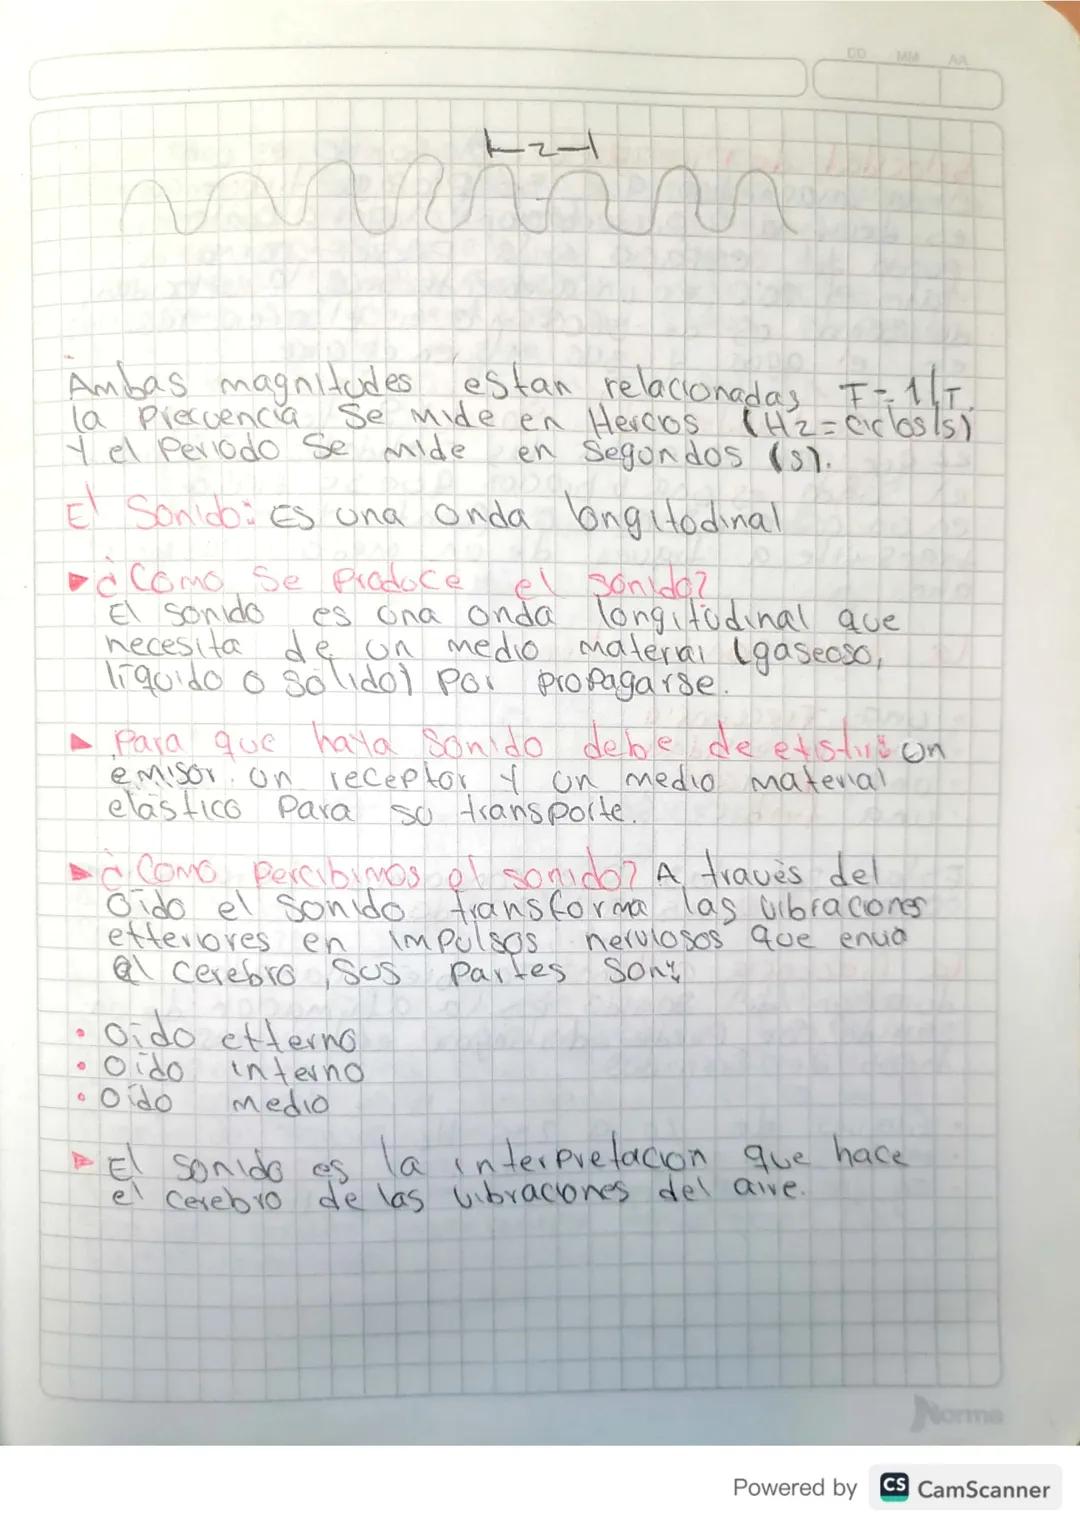 DD MM AA
⊢2⊣
Ambas magnitudes estan relacionadas F=1/T.
la Frecuencia Se mide en Hercios (Hz=ciclos/s)
Y el Periodo Se mide en Segundos (s).
El Sonido: Es una onda longitudinal
¿Como Se Produce el sonido?
El sonido es una onda longitudinal que
necesita de un medio material (gaseoso,
líquido o sólido) por propagarse.
Para que haya sonido debe de existir: un
emisor, un receptor y un medio material
elástico Para su transporte.
¿Como Percibimos el sonido? A través del
Oído el sonido transforma las vibraciones
exteriores en impulsos nerviosos que envia
al cerebro, sus Partes son:
• Oído externo
• Oído interno
• Oído medio
El sonido es la interpretacion que hace
el cerebro de las vibraciones del aire.
Norma
Powered by CS CamScanner